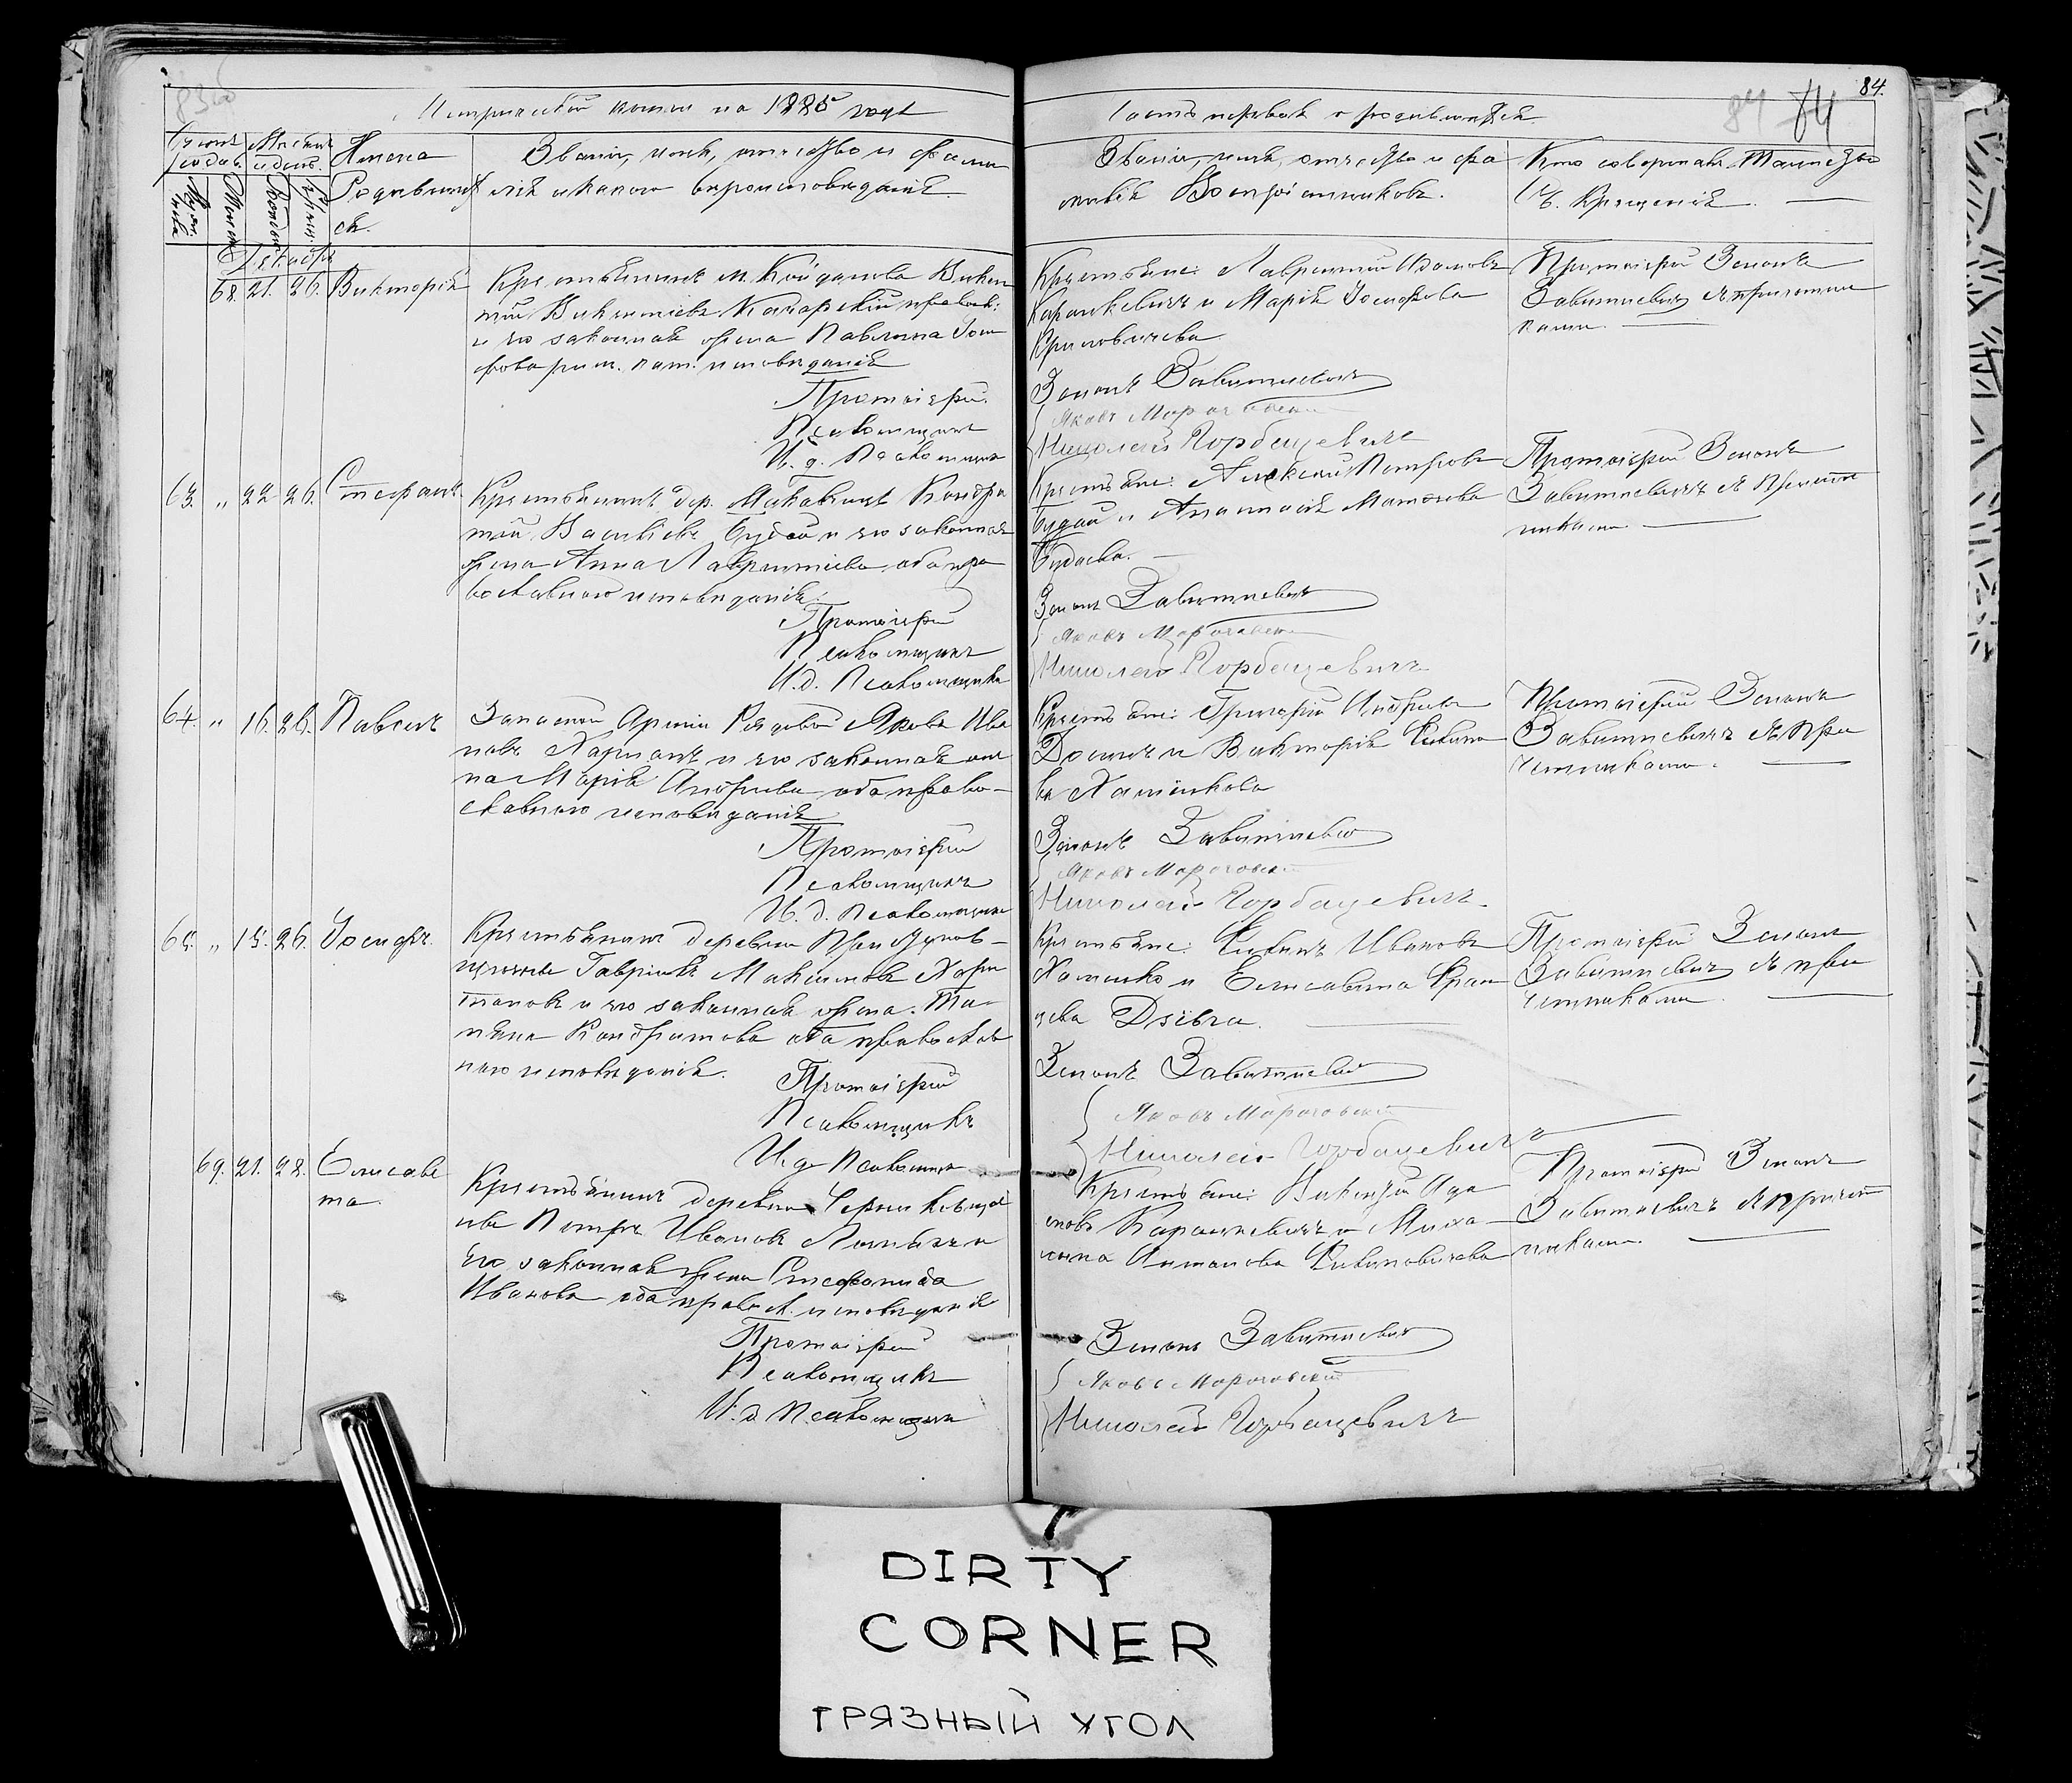 Метрической книги на 1885 годъ
Часть первая о родившихся.
84.
84
Счетъ родив.
Мѣсяцъ и день.
Имена Родившихся.
Званіе, имя, отчество и фамилія и какого вѣроисповѣданія.
Званіе, имя, отчество и фамилія Воспріемниковъ.
Кто совершалъ Таинство Св. Крещенія.
Декабрь
68. 21. 26. Викторія
Крестьянинъ м. Койданова Викен
тій Викентіевъ правосл.
и его законная жена Павлина Іоси
фова рим. кат. исповѣданія
Протоіерей
Псаломщикъ
И. д. Псаломщика
Крестьяне: Лаврентій Адамовъ
Карашкевичъ и Марія Іосифова
Зенонъ Завитневичъ
Яковъ Морочовскій
Николай Горбацевичъ
Протоіерей Зенонъ
Завитневичъ съ причетни
ками.
63. " 22 26. Стефанъ
Крестьянинъ дер. Макавчицъ Кондра
тій Васильевъ Будай и его законная
жена Анна Лаврентіева оба пра
вославнаго исповѣданія.
Протоіерей
Псаломщикъ
И. д. Псаломщика
Крестьяне: Алексѣй Петровъ
Будай и Анастасія Матвѣева
Будаева.
Зенонъ Завитневичъ
Яковъ Морочовскій
Николай Горбацевичъ
Протоіерей Зенонъ
Завитневичъ съ Причет
никами.
64. " 16. 26. Павелъ
Запасной Арміи Рядовой Яковъ Ива
новъ Харитонъ и его законная же
на Марія Андреева оба право-
славнаго исповѣданія
Протоіерей
Псаломщикъ
И. д. Псаломщика
Крестьяне: Григорій Андреевъ
и Викторія Феликсо
ва Хатенкова
Зенонъ Завитневичъ
Яковъ Морочовскій
Николай Горбацевичъ
Протоіерей Зенонъ
Завитневичъ съ При
четниками.
65. " 15. 26. Іосифъ.
Крестьянинъ деревни
Гавріилъ Максимовъ Хари
тоновъ и его законная жена Та-
тьяна Кондратова оба православ
наго исповѣданія.
Протоіерей
Псаломщикъ
И. д. Псаломщика
Крестьяне: Иванъ
Хатенко и Елисавета Фран
цева Дзівга.
Зенонъ Завитневичъ
Яковъ Морочовскій
Николай Горбацевичъ
Протоіерей Зенонъ
Завитневичъ съ при
четниками
69. 21. 28. Елисаве
та.
Крестьянинъ деревни
Петръ Ивановъ и
его законная жена Стефанида
Иванова оба правосл. исповѣданія
Протоіерей
Псаломщикъ
И. д. Псаломщика
Крестьяне: Викентій Ада
мовъ Карашкевичъ и Миха
лина Антонова
Зенонъ Завитневичъ
Яковъ Морочовскій
Николай Горбацевичъ
Протоіерей Зенонъ
Завитневичъ съ Причет
никами.
DIRTY
CORNER
ГРЯЗНЫЙ УГОЛ